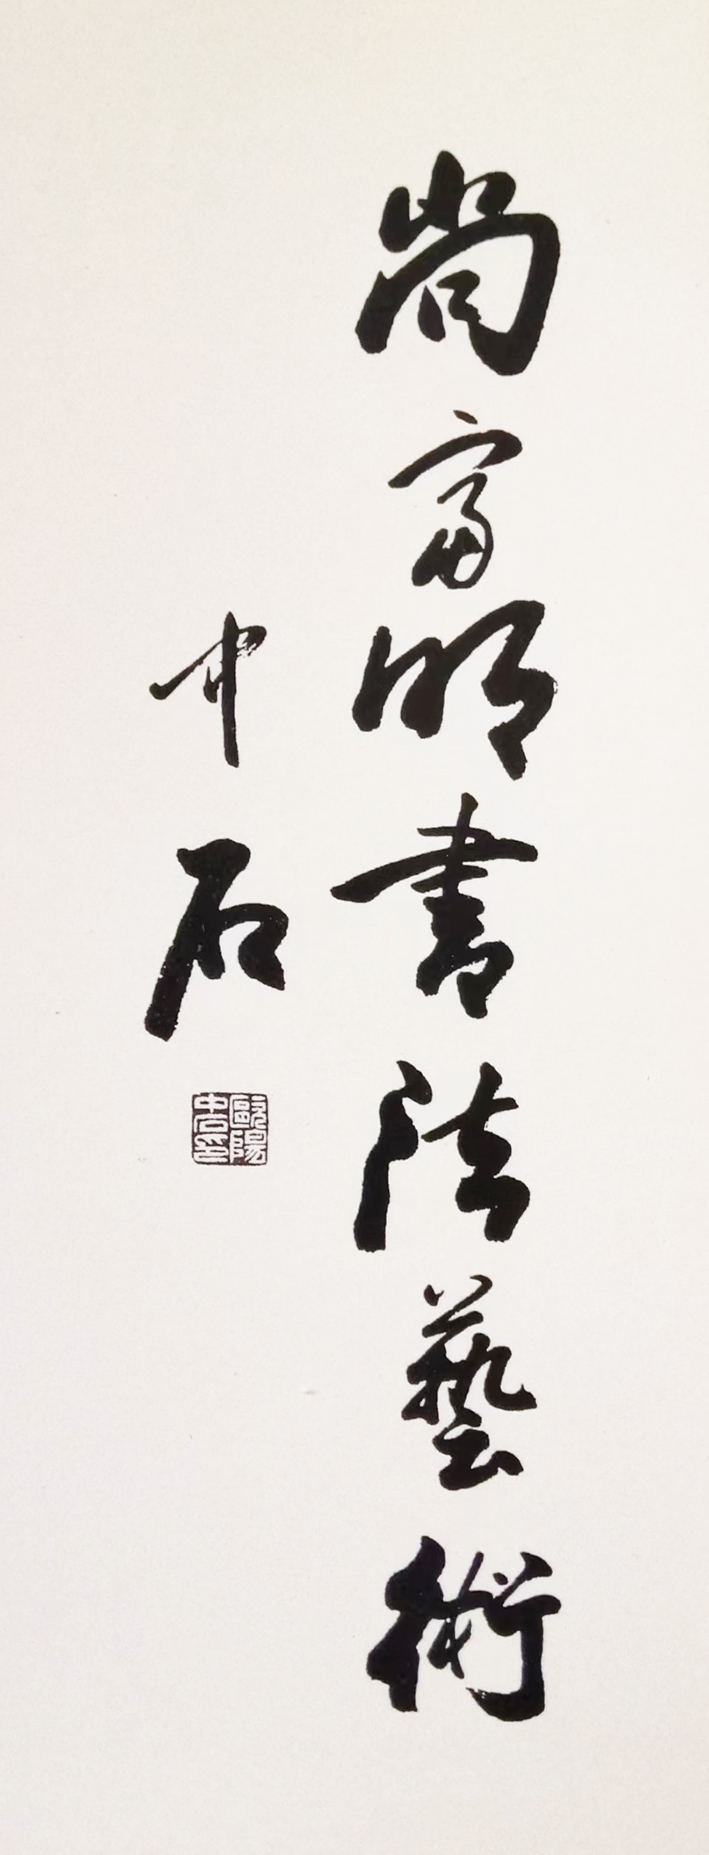 尚富明書法藝術
中石
歐陽中石印